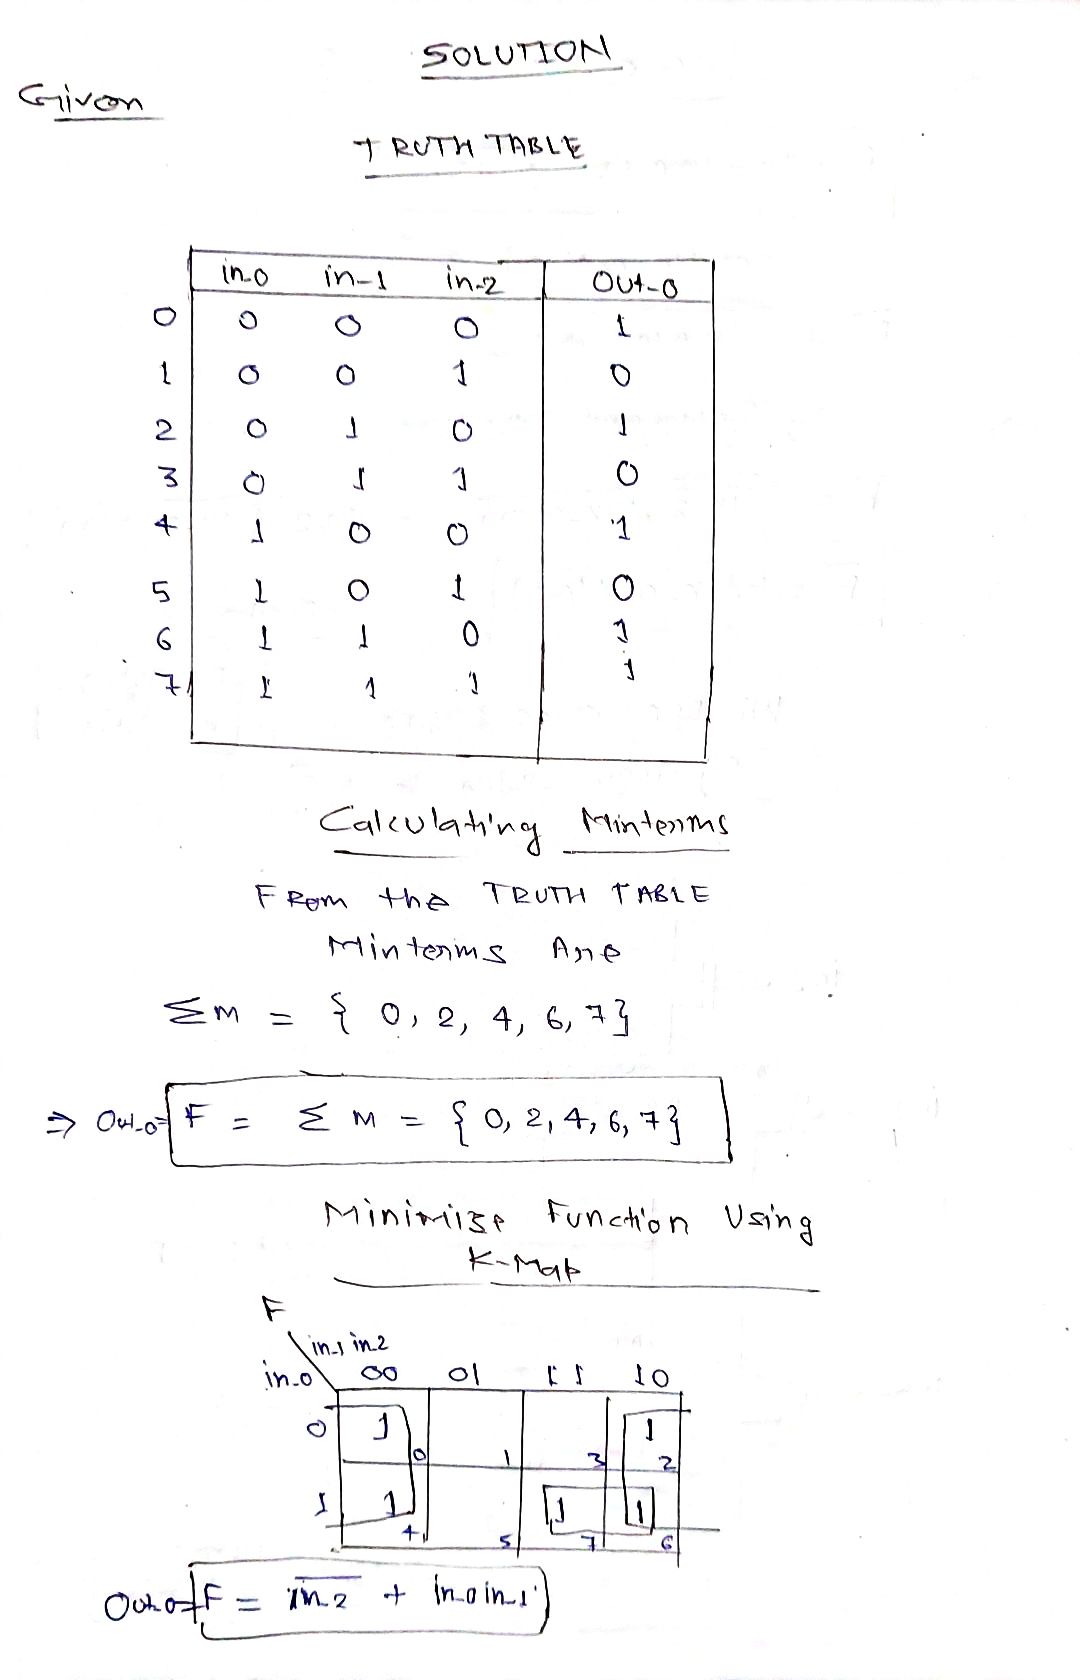 SOLUTION
Given
TRUTH TABLE
in_0 in_1 in_2 Out_0
0 0 0 0 1
1 0 0 1 0
2 0 1 0 1
3 0 1 1 0
4 1 0 0 1
5 1 0 1 0
6 1 1 0 1
7 1 1 1 1
Calculating Minterms
From the TRUTH TABLE
Minterms Are
ΣM = { 0, 2, 4, 6, 7}
⇒ Out_0 = F = ΣM = { 0, 2, 4, 6, 7}
Minimize Function Using
K-Map
F
in_1 in_2
in_0 00 01 11 10
0 1 1
0 1 3 2
1 1 1 1
4 5 7 6
Out_0 = F = \overline{in_2} + in_0 in_1